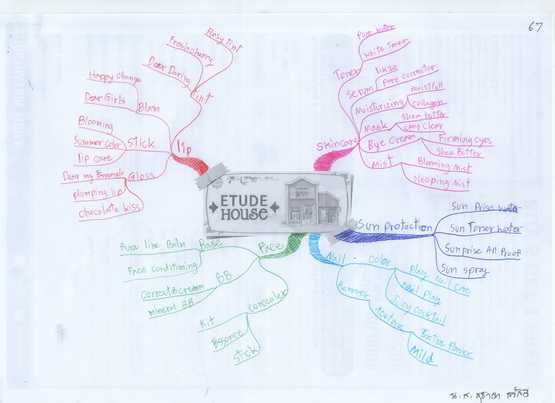 67
Rosy tint
Fresh cherry
Dear Darling
tint
Happy Orange
Dear Girls
Balm
Blooming
Summer color
Stick
lip care
lip
Dear my
Gloss
plumping lip
chocolate kiss
Pure water
White Toner
Toner
serum
pore corrector
Moisturizing
Moistfull
collagen
Mask
Shea butter
clay clear
Skincare
Eye Cream
Firming eyes
Shea Butter
Mist
Blooming mist
sleeping mist
ETUDE
HOUSE
Sun protection
Sun Prise Water
Sun Toner Water
Sunprise All Proof
Sun spray
Face
Base
line Balm
Face Conditioning
BB
Cream
mineral BB
Concealer
Kit
Essence
Stick
Nail
color
Play Nail Care
Nail Play
Juicy cocktail
Remover
Acetone
Extra Power
Mild